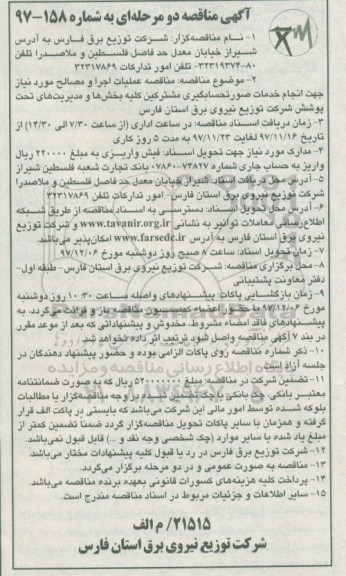 آگهی مناقصه دو مرحله‌ای به شماره ۱۵۸-۹۷
۱- نام مناقصه‌گزار: شرکت توزیع برق فارس به آدرس
شیراز خیابان معدل حد فاصل فلسطین و ملاصدرا تلفن
۸۰-۳۲۳۱۹۳۷۴- تلفن امور تدارکات ۳۲۳۱۷۸۶۹
۲- موضوع مناقصه: مناقصه عملیات اجرا و مصالح مورد نیاز
جهت انجام خدمات صورتحسابگیری مشترکین کلیه بخش‌ها و مدیریت‌های تحت
پوشش شرکت توزیع نیروی برق استان فارس
۳- زمان دریافت اسناد مناقصه: در ساعت اداری (از ساعت ۷/۳۰ الی ۱۴/۳۰) از
تاریخ ۹۷/۱۱/۱۶ لغایت ۹۷/۱۱/۲۳ به مدت ۵ روز کاری
۴- مدارک مورد نیاز جهت تحویل اسناد: فیش واریزی به مبلغ ۲۲۰۰۰۰ ریال
واریز به حساب جاری شماره ۷۳۸۲۷-۰۷۸۶۰ بانک تجارت شعبه فلسطین شیراز
۵- آدرس محل دریافت اسناد: شیراز خیابان معدل حد فاصل فلسطین و ملاصدرا
شرکت توزیع نیروی برق استان فارس- امور تدارکات تلفن ۳۲۳۱۷۸۶۹
۶- آدرس محل تحویل اسناد: دسترسی به اسناد مناقصه از طریق شبکه
اطلاع‌رسانی معاملات توانیر به نشانی www.tavanir.org.ir و شرکت توزیع
نیروی برق استان فارس به آدرس www.farsedc.ir امکان‌پذیر می‌باشد.
۷- زمان تحویل اسناد: ساعت ۸ صبح روز دوشنبه مورخ ۹۷/۱۲/۰۶
۸- محل برگزاری مناقصه: شرکت توزیع نیروی برق استان فارس- طبقه اول-
دفتر معاونت پشتیبانی
۹- زمان بازگشایی پاکات: پیشنهادهای واصله ساعت ۱۰:۳۰ روز دوشنبه
مورخ ۹۷/۱۲/۰۶ با حضور اعضاء کمیسیون مناقصه باز و قرائت می‌گردد. به
پیشنهادهای فاقد امضاء مشروط، مخدوش و پیشنهاداتی که بعد از موعد مقرر
در بند ۷ آگهی مناقصه واصل شود ترتیب اثر داده نخواهد شد.
۱۰- ذکر شماره مناقصه روی پاکات الزامی بوده و حضور پیشنهاد دهندگان در
جلسه آزاد است.
۱۱- تضمین شرکت در مناقصه مبلغ ریال که به صورت ضمانتنامه
معتبر بانکی، چک بانکی یا چک تضمین شده در وجه مناقصه‌گزار یا مطالبات
بلوکه شده توسط امور مالی این شرکت می‌باشد که بایستی در پاکت الف قرار
گرفته و همزمان با سایر پاکات تحویل مناقصه‌گزار گردد ضمنا تضمین کمتر از
مبلغ یاد شده یا سایر موارد (چک شخصی وجه نقد و ...) قابل قبول نمی‌باشد.
۱۲- شرکت توزیع برق فارس در رد یا قبول کلیه پیشنهادات مختار می‌باشد.
۱۳- مناقصه به صورت عمومی و در دو مرحله برگزار می‌گردد.
۱۴- پرداخت کلیه هزینه‌های کسورات قانونی بعهده برنده مناقصه می‌باشد.
۱۵- سایر اطلاعات و جزئیات مربوط در اسناد مناقصه مندرج است.
۲۱۵۱۵/م الف
شرکت توزیع نیروی برق استان فارس